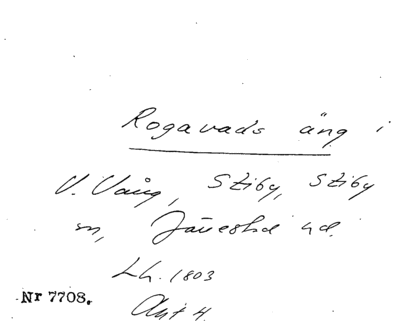 Rogavads äng i
V. Vång, Stiby, Stiby
sn, Järrestad hd.
Lh. 1803
Nr 7708.
Akt 4.